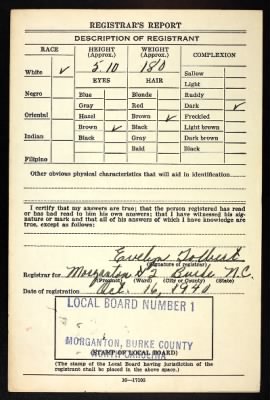 REGISTRAR'S REPORT
DESCRIPTION OF REGISTRANT
RACE HEIGHT (Approx.) WEIGHT (Approx.) COMPLEXION
White ✓ 5-10 180 Sallow
EYES HAIR Light
Negro Blue Blonde Ruddy
Gray Red Dark ✓
Oriental Hazel Brown ✓ Freckled
Brown ✓ Black Light brown
Indian Black Gray Dark brown
Bald Black
Filipino
Other obvious physical characteristics that will aid in identification
I certify that my answers are true; that the person registered has read
or has had read to him his own answers; that I have witnessed his sig-
nature or mark and that all of his answers of which I have knowledge are
true, except as follows:
Evelyn Tolbert
(Signature of registrar)
Registrar for Morganton Burke N.C.
(Precinct) (Ward) (City or County) (State)
Date of registration Oct. 16, 1940
LOCAL BOARD NUMBER 1
MORGANTON, BURKE COUNTY
NORTH CAROLINA
(STAMP OF LOCAL BOARD)
(The stamp of the Local Board having jurisdiction of the registrant
shall be placed in the above space.)
16-17105